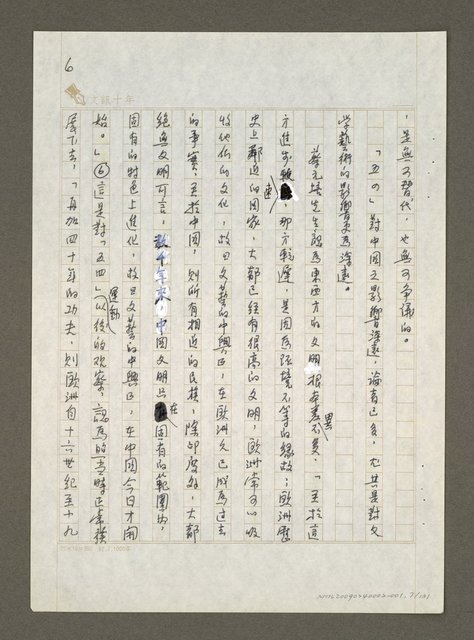 6
文訊十年
，是無可替代，也無可爭議的。
「五四」對中國之影響深遠，論者已多，尤其是對文
學藝術的影響更為深遠。
蔡元培先生認為東西方的文明根本差異不多，「至於這
方進步速，那方較遲，是因為環境不等的緣故；歐洲歷
史上鄰近的國家，大都已經有很高的文明，歐洲常可以吸
收他們的文化，故曰文藝的中興已，在歐洲久已成為過去
的事實，至於中國，則所有相近的民族，除印度外，大都
絕無文明可言，數千年來，中國文明只在固有的範圍內，
固有的特色上進化，故曰文藝的中興已，在中國今日才開
始。」⑥這是對「五四」運動以後的觀察，認為的
展下去，「再加四十年的功夫，則歐洲自十六世紀至十九
25×12=300 82.7.1000本
NMTL20090240002-001, 7/131